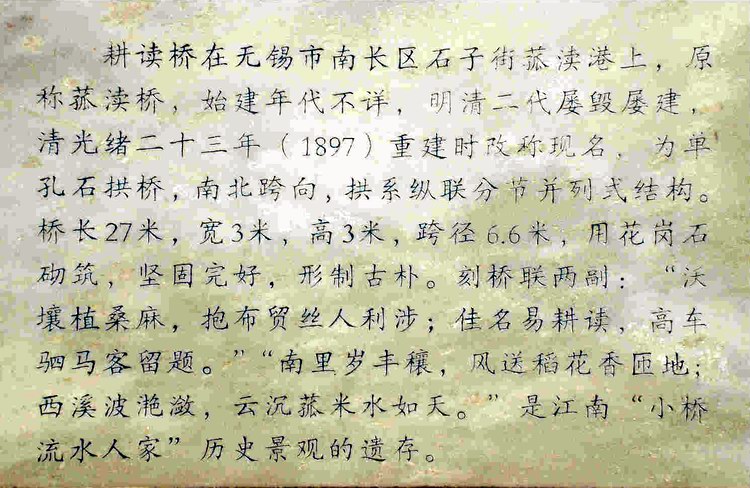 耕读桥在无锡市南长区石子街菰渎港上，原
称菰渎桥，始建年代不详，明清二代屡毁屡建，
清光绪二十三年（1897）重建时改称现名，为单
孔石拱桥，南北跨向，拱系纵联分节并列式结构。
桥长27米，宽3米，高3米，跨径6.6米，用花岗石
砌筑，坚固完好，形制古朴。刻桥联两副：“沃
壤植桑麻，抱布贸丝人利涉；佳名易耕读，高车
驷马客留题。”“南里岁丰穰，风送稻花香匝地；
西溪波滟潋，云沉菰米水如天。”是江南“小桥
流水人家”历史景观的遗存。